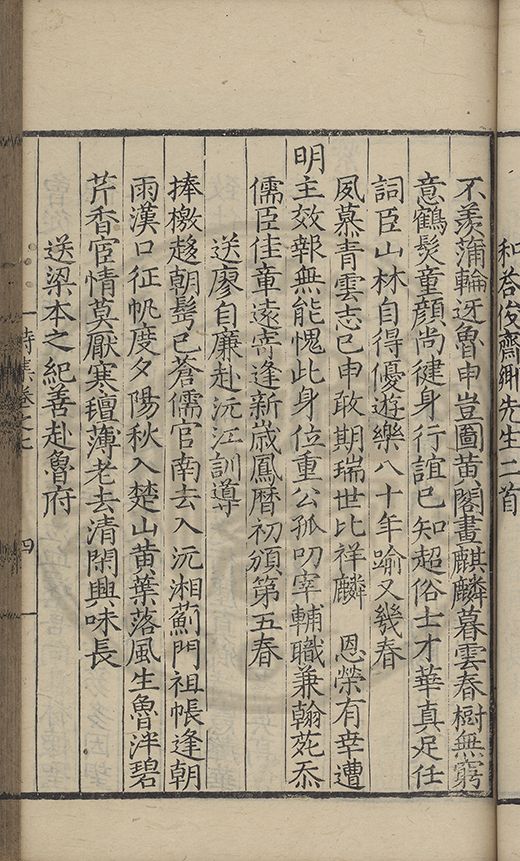 和荅俊齋卿先生二首
不羨蒲輪迓魯申豈圖黃閣畫麒麟暮雲春樹無窮
意鶴髮童顏尚健身行誼已知超俗士才華真足任
詞臣山林自得優遊樂八十年踰又幾春
夙慕青雲志已申敢期瑞世比祥麟　恩榮有幸遭
明主效報無能愧此身位重公孤叨宰輔職兼翰苑忝
儒臣佳章遠寄逢新歲鳳曆初頒第五春
送廖自廉赴沅江訓導
捧檄趍朝髩已蒼儒官南去入沅湘薊門祖帳逢朝
雨漢口征帆度夕陽秋入楚山黃葉落風生魯泮碧
芹香官情莫厭寒氊薄老去清閑興味長
送梁本之紀善赴魯府
詩集卷之七　四